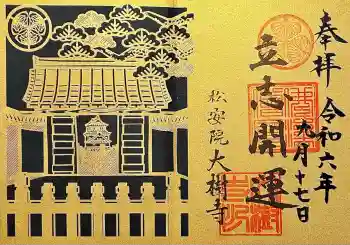 奉拝
令和六年
九月十七日
立志開運
松安院大樹寺